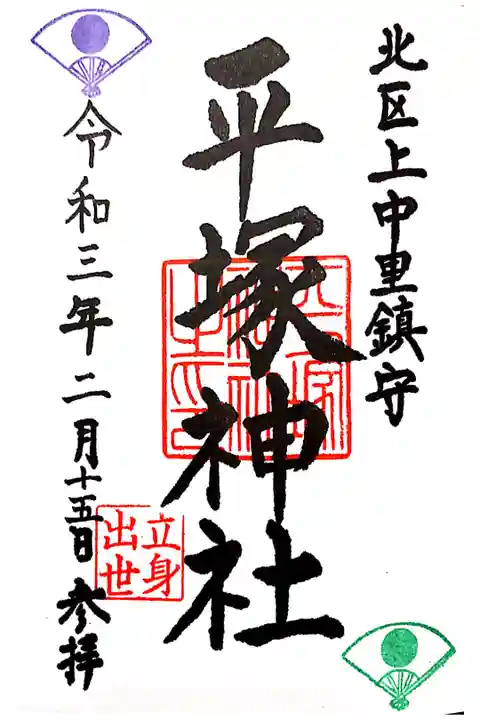 北区上中里鎮守
平塚神社
平塚神社之印
立身出世
令和三年二月十五日 参拝